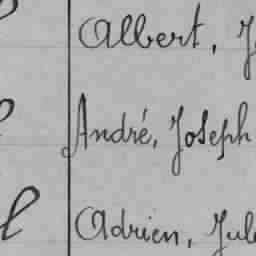 Albert,
André, Joseph
Adrien, Jul